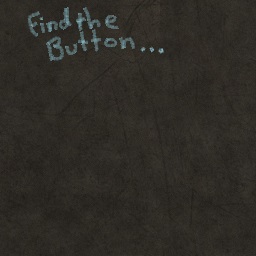 Find the
Button...